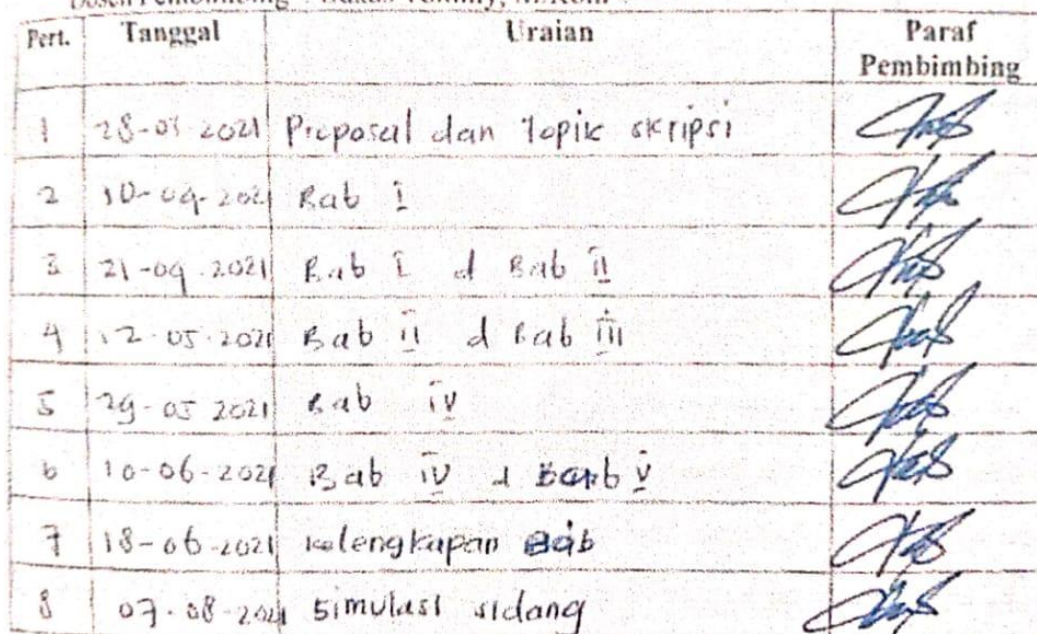 Dosen Pembimbing
Pert. Tanggal Uraian Paraf Pembimbing
1 28-03-2021 Proposal dan Topic skripsi
2 10-04-2021 Bab I
3 21-04-2021 Bab I d Bab II
4 12-05-2021 Bab II d Bab III
5 29-05-2021 Bab IV
6 10-06-2021 Bab IV d Bab V
7 18-06-2021 kelengkapan Bab
8 07-08-2021 simulasi sidang